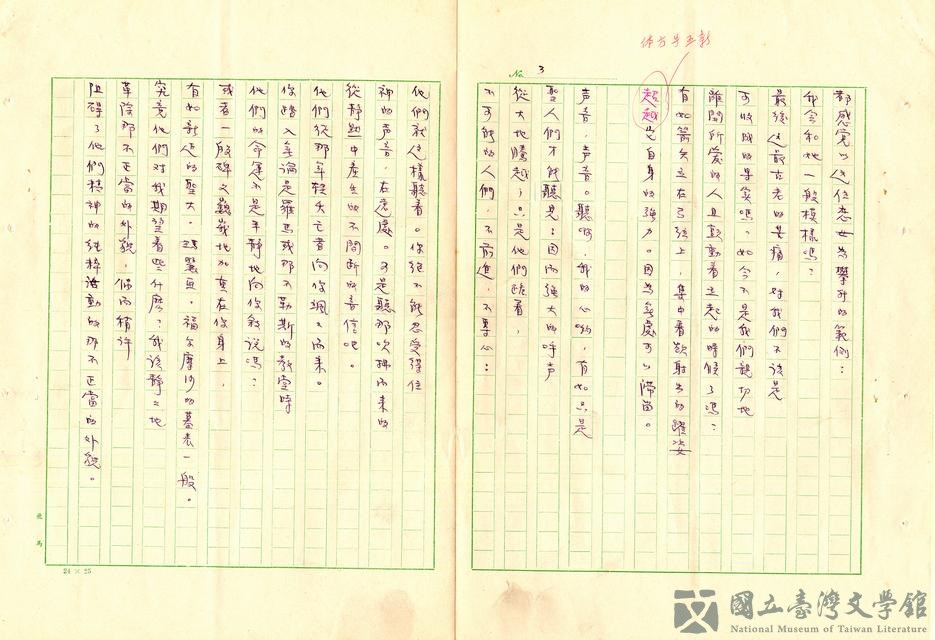 No. 3
都感覺以這位戀女為攀升的範例：
我會和她一般模樣嗎？
最後這最古老的哀痛，對我們不該是
可收成的果實嗎？如今不是我們親切地
離開所愛的人且顫動着立起的時候了嗎？
有如箭矢立在弓弦上，集中着欲射出的躍姿
超越出自身的強力。因為無處可以滯留。
声音，声音。聽啊，我的心喲，有如只是
聖人們才能聽見：因而強大的呼声
從大地騰越；只是他們跪着，
不可能的人們，不前進，不專心：
他們就這樣聽着。你絕不能忍受得住
神的声音，在遠處。可是聽那吹拂而來的
從靜默中產生的不間斷的音信吧。
他們從那年輕夭亡者向你颯々而來。
你踏入無論是羅馬或那不勒斯的教堂時
他們的命運不是平靜地向你敘說嗎？
或者一般碑文巍峨地加重在你身上，
有如新近的聖大．瑪麗亞．福爾摩沙的墓表一般。
究竟他們對我期望着些什麼？我該靜々地
革除那不正當的外貌，偶而稍許
阻礙了他們精神的純粹活動的那不正當的外貌。
飛馬
24 × 25
國立臺灣文學館
National Museum of Taiwan Literature